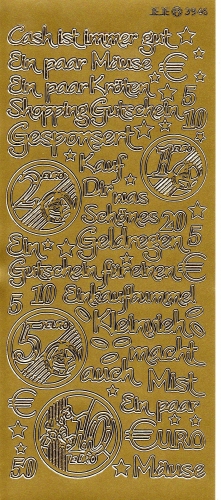 3946
Cash ist immer gut
Ein paar Mäuse €
Ein paar Kröten 5
Shopping Gutschein 10
Gesponsert
Kauf
Dir was
Schönes 20
2 EURO
1 EURO
Ein Geldregen 5
Gutschein für einen €
5 10 Einkaufbummel
Kleinvieh
5 EURO
macht
auch Mist
Ein paar
€ 10 EURO EURO
50 Mäuse